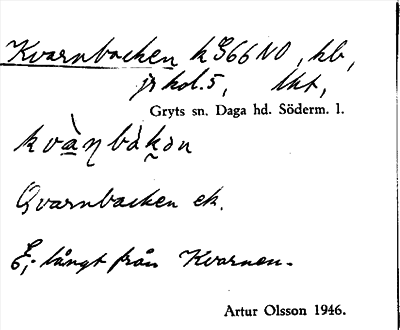 Kvarnbacken k S66 NO, hb,
jr kol. 5, lht,
Gryts sn. Daga hd. Söderm. l.
kvàṇbàkən
Qvarnbacken ek.
Ej långt från Kvarnen.
Artur Olsson 1946.